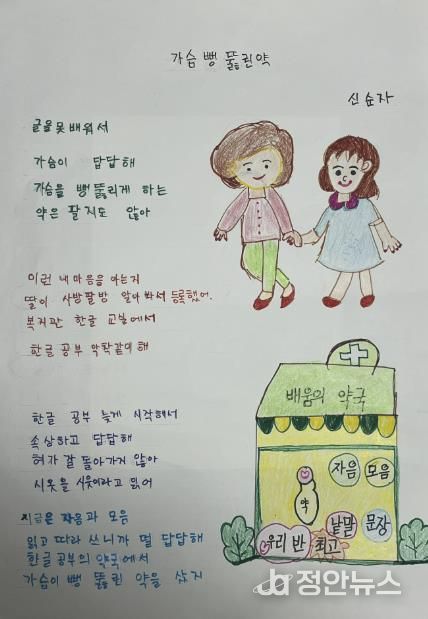 가슴 뻥 뚫린약
신순자
글을 못 배워서
가슴이 답답해
가슴을 뻥 뚫리게 하는
약은 팔지도 않아
이런 내 마음을 아는지
딸이 사방팔방 알아봐서 등록했어.
복지관 한글 교실에서
한글 공부 악착같이 해
한글 공부 늦게 시작해서
속상하고 답답해
혀가 잘 돌아가지 않아
시옷을 시읏이라고 읽어
지금은 자음과 모음
읽고 따라 쓰니까 덜 답답해
한글 공부의 약국에서
가슴이 뻥 뚫린 약을 샀지
배움의 약국
자음 모음
약
낱말 문장
우리 반 최고
정안뉴스